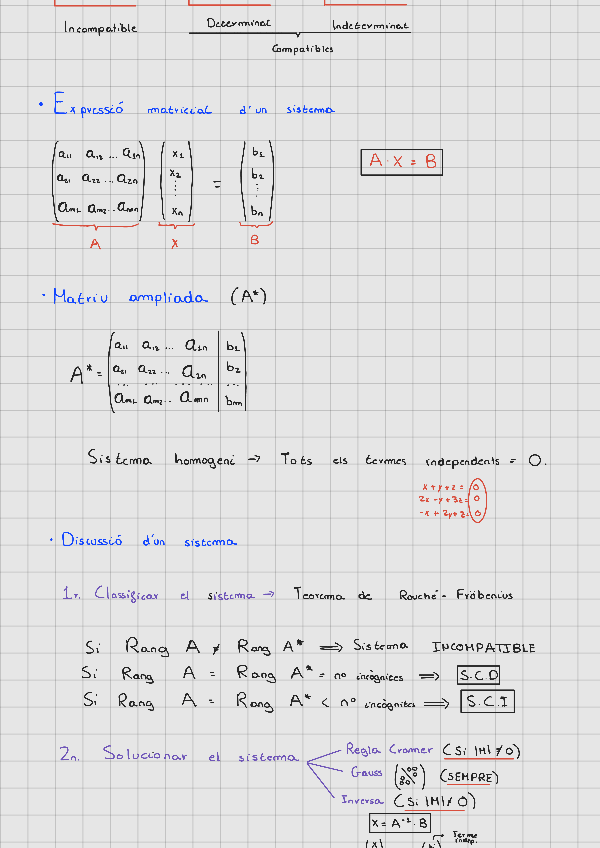 Incompatible Determinat Indeterminat
Compatibles
• Expressió matricial d'un sistema
a11 a12 ... a1n x1 b1
a21 a22 ... a2n x2 = b2 A · X = B
⋮ ⋮
am1 am2 ... amn xn bn
A X B
• Matriu ampliada (A*)
a11 a12 ... a1n | b1
A* = a21 a22 ... a2n | b2
... ... ... ... ...
am1 am2 ... amn | bm
Sistema homogeni → Tots els termes independents = 0.
x + y + z = 0
2x - y + 3z = 0
-x + 2y + z = 0
• Discussió d'un sistema
1r. Classificar el sistema → Teorema de Rouché - Fröbenius
Si Rang A ≠ Rang A* ⇒ Sistema INCOMPATIBLE
Si Rang A = Rang A* = nº incògnites ⇒ S.C.D
Si Rang A = Rang A* < nº incògnites ⇒ S.C.I
2n. Solucionar el sistema
Regla Cramer (Si |M| ≠ 0)
Gauss (SEMPRE)
Inversa (Si |M| ≠ 0)
X = A⁻¹ · B
Terme
indep.